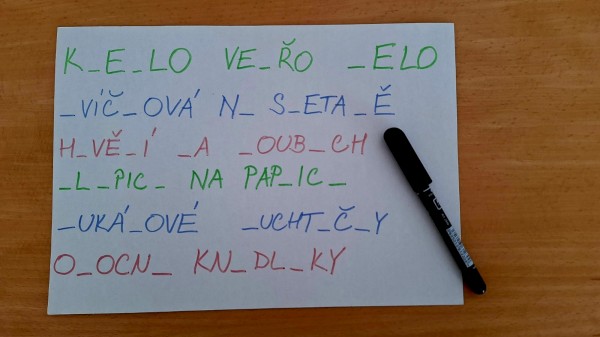 K_E_LO VE_ŘO _ELO
_VÍČ_OVÁ N_ S_ETA_Ě
H_VĚ_Í _A _OUB_CH
_L_PIC_ NA PAP_IC_
_UKÁ_OVÉ _UCHT_Č_Y
O_OCN_ KN_DL_KY